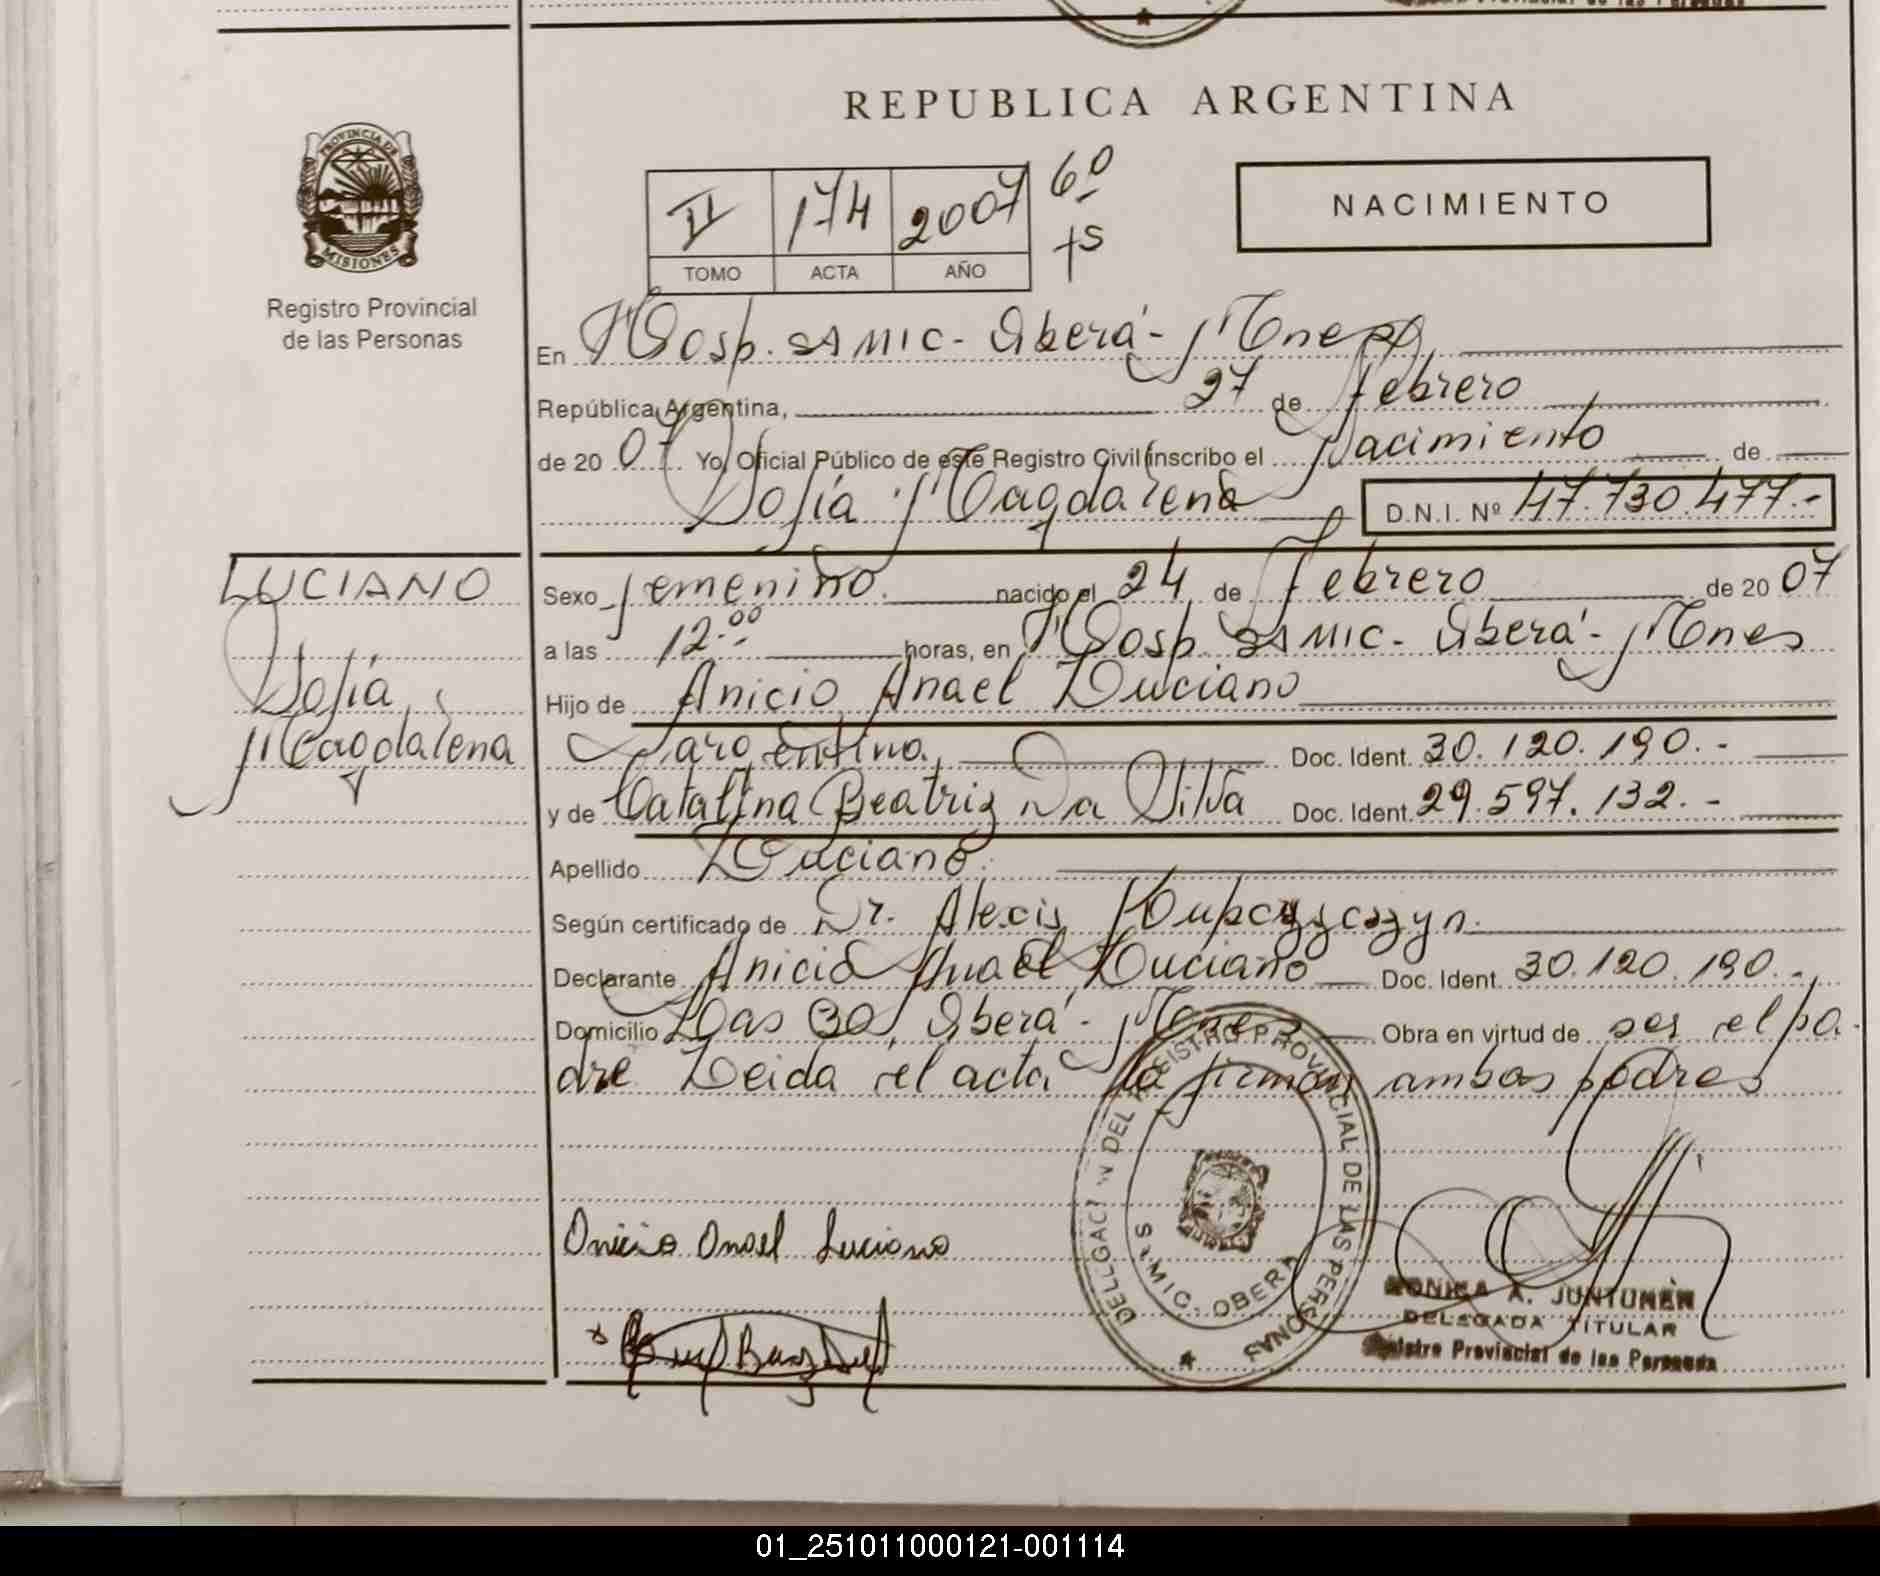 REPUBLICA ARGENTINA
PROVINCIA DE
MISIONES
Registro Provincial
de las Personas
II 174 2007 6º
TOMO ACTA AÑO
NACIMIENTO
En Hosp. SAMIC - Oberá - Mnes
República Argentina, 27 de Febrero
de 20 07 Yo, Oficial Público de este Registro Civil inscribo el Nacimiento de
Sofía Magdalena D.N.I. Nº 47.730.477.-
LUCIANO
Sofía
Magdalena
Sexo femenino. nacido el 24 de Febrero de 20 07
a las 12.00 horas, en Hosp. SAMIC - Oberá - Mnes
Hijo de Anicio Anael Luciano
argentino. Doc. Ident. 30.120.190.-
y de Catalina Beatriz Da Silva Doc. Ident. 29.597.132.-
Apellido Luciano.
Según certificado de Dr. Alexis
Declarante Anicio Anael Luciano Doc. Ident. 30.120.190.-
Domicilio Oberá - Mnes Obra en virtud de ser el pa-
dre Leida el acta la firman ambos padres
DELEGACION DEL REGISTRO PROVINCIAL DE LAS PERSONAS
SAMIC. OBERA
Anicio Anael Luciano
MONICA A. JUNTUNEN
DELEGADA TITULAR
Registro Provincial de las Personas
01_251011000121-001114